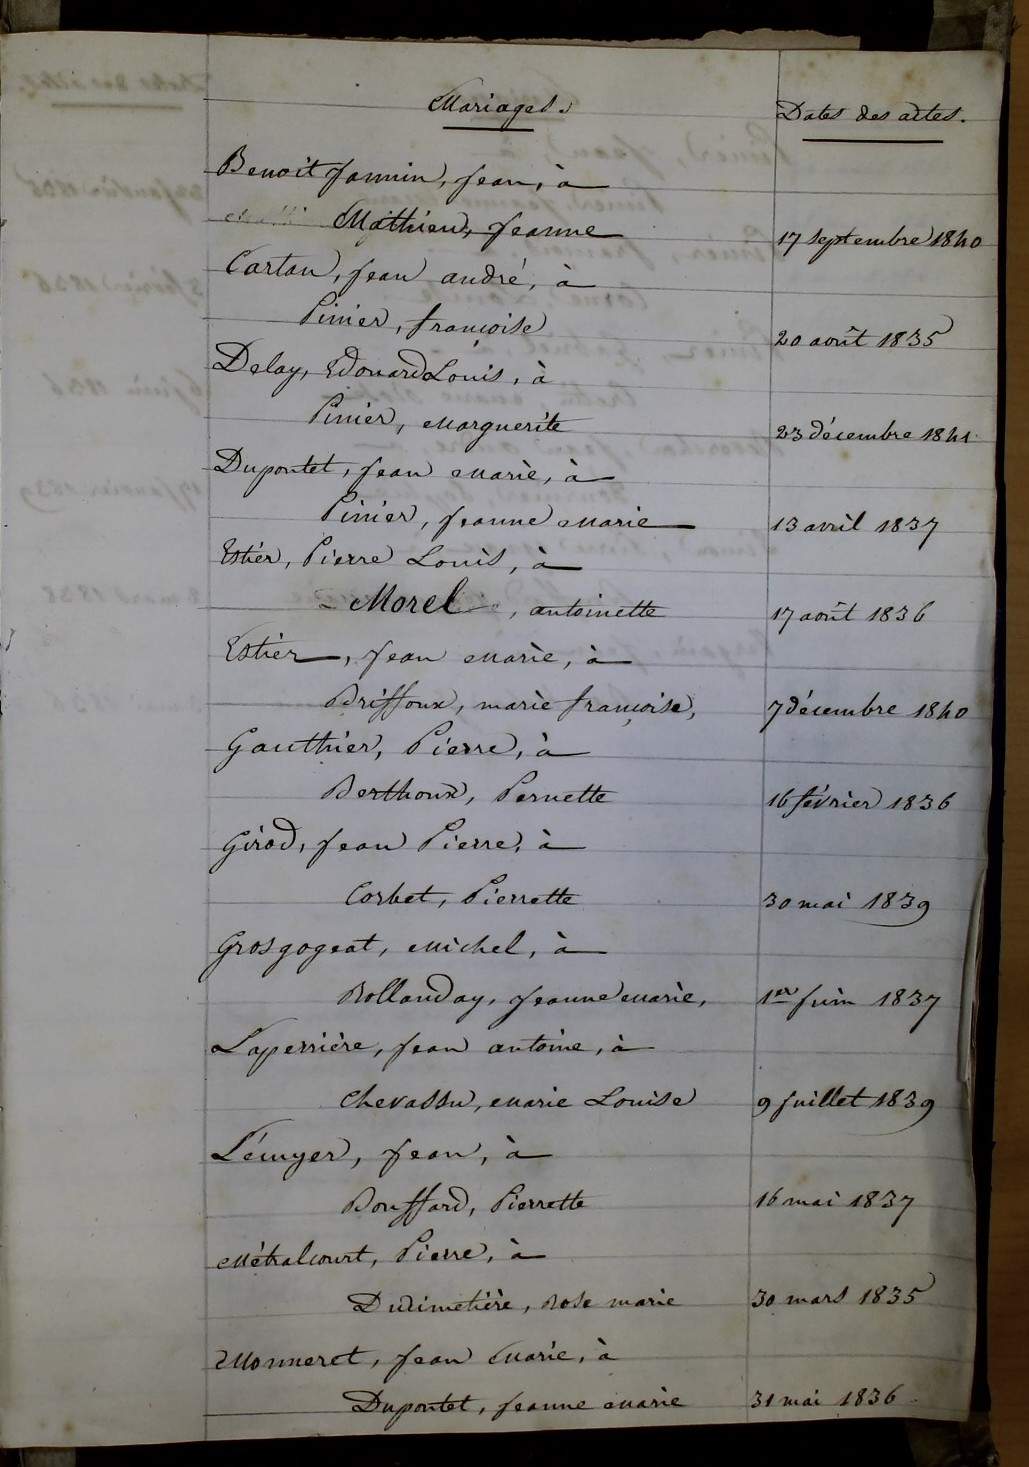 Mariages.
Dates des actes.
Benoit Jannin, Jean, à
Mathieu, Jeanne 17 septembre 1840
Cartan, Jean andré, à
Pinier, françoise 20 août 1835
Delay, Edouard Louis, à
Pinier, Marguerite 23 décembre 1841
Dupontet, Jean Marie, à
Pinier, Jeanne Marie 13 avril 1837
Estier, Pierre Louis, à
Morel, antoinette 17 août 1836
Estier, Jean Marie, à
Briffoux, marie françoise, 7 décembre 1840
Gauthier, Pierre, à
Berthoux, Pernette 16 février 1836
Girod, Jean Pierre, à
Corbet, Pierrette 30 mai 1839
Grosgogeat, Michel, à
Rollanday, Jeanne Marie, 1er Juin 1837
Laperrière, Jean antoine, à
Chevassu, Marie Louise 9 Juillet 1839
Lécuyer, Jean, à
Bouffard, Pierrette 16 mai 1837
Métralcourt, Pierre, à
Ducimetière, Rose marie 30 mars 1835
Monneret, Jean Marie, à
Dupontet, Jeanne Marie 31 mai 1836